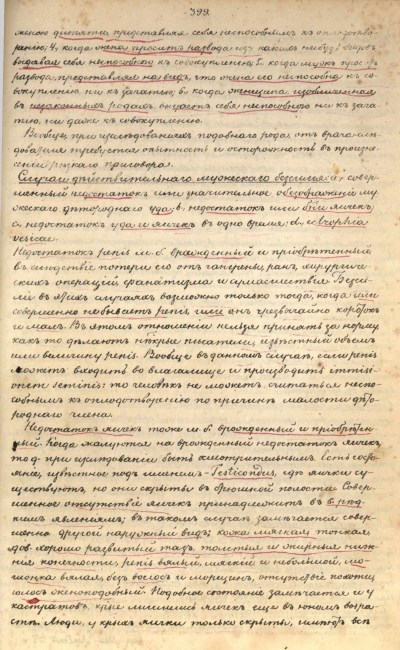 399.
женою дитяти представляя себя неспособнымъ къ оплодотво-
ренію; 4, когда жена проситъ развода изъ какихъ нибудь видовъ
выдавая себя неспособною къ совокупленію; 5, когда мужъ проситъ
развода, представляя на видъ, что жена его неспособна къ со-
вокупленію ни къ зачатію; 6, когда женщина обвиняемая
въ незаконныхъ родахъ, выдаетъ себя неспособною ни къ зача-
тію, ни даже къ совокупленію.
Вообще при изслѣдованіяхъ подобнаго рода отъ врача из-
слѣдователя требуется опытность и осторожность въ произне-
сеніи рѣзкаго приговора.
Случаи дѣйствительнаго мужскаго безсилія: a, совер-
шенный недостатокъ или значительное обезображеніе му-
жескаго дѣтороднаго уда; b, недостатокъ или яичекъ;
c, недостатокъ уда и яичекъ въ одно время; d, ectrophia
vesicae.
Недостатокъ penis м. б. врожденный и пріобрѣтенный
въ слѣдствіе потери его отъ гангрены, ранъ, хирургиче-
скихъ операцій, фанатизма и сумасшествія. Безси-
ліе въ этихъ случаяхъ возможно только тогда, когда или
совершенно не бываетъ penis, или онъ чрезвычайно коротокъ
и малъ. Въ этомъ отношеніи нельзя принять за норму
какъ то дѣлаютъ нѣкрые писатели, извѣстный объемъ
или величину penis. Вообще въ данномъ случаѣ, если penis
можетъ входить во влагалище и производить immissi-
onem seminis: то человѣкъ не можетъ считаться неспо-
собнымъ къ оплодотворенію по причинѣ малости дѣто-
роднаго члена.
Недостатокъ яичекъ тоже м. б. врожденный и пріобрѣтен-
ный. Когда жалуются на врожденный недостатокъ яичекъ,
то д. при изслѣдованіи быть осмотрительнымъ. Есть состо-
яніе, извѣстное подъ именемъ - Testicondus, гдѣ яички су-
ществуютъ, но они скрыты въ брюшной полости. Совер-
шенное отсутствіе яичекъ принадлежитъ къ рѣд-
кимъ явленіямъ; въ такомъ случаѣ замѣчается совер-
шенно другой наружный видъ; кожа мягкая, тонкая,
хорошо развитый тазъ, толстыя и жирныя ниж-
нія конечности, penis вялый, мягкій и небольшой, мо-
шонка вялая, безъ волосъ и морщинъ, отсутствіе похоти,
голосъ женоподобный. Подобное состояніе замѣчается и у
кастратовъ, крые лишились яичекъ еще въ юномъ возра-
стѣ. Люди, у крыхъ яички только скрыты, имѣютъ всѣ